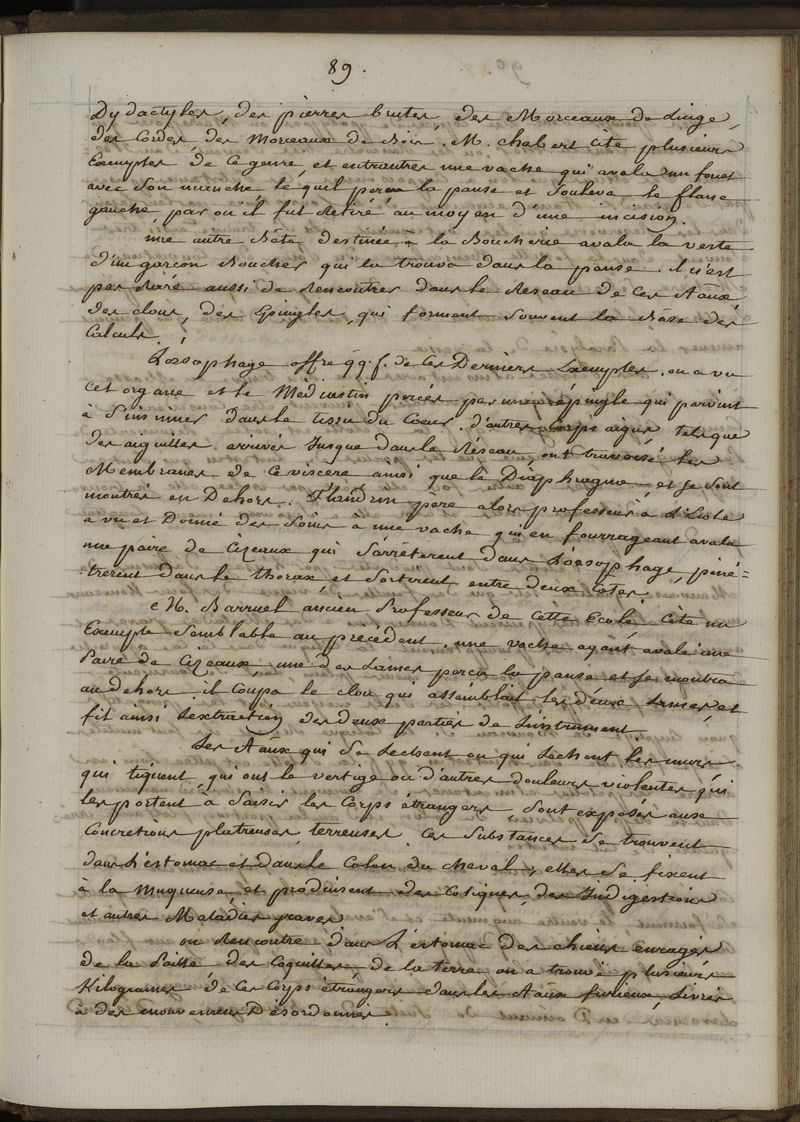 89.
Dydactyles, des pierres brutes, des Morceaux de Linge,
des Cordes, des Morceaux de Bois. M. chabert cite plusieurs
Exemples de ce genre, et entrautres une vache qui avala un fouet
avec son manche lequel perça la panse et souleva le flanc
gauche, par ou il fut Retiré au moyen d'une incision.
une autre Bête destinée à la Boucherie avala la veste
d'un garçon Boucher qui la trouva dans la panse. il n'est
pas Rare aussi de Rencontrer dans le Reseau de ces Aãux,
des clous, des Epingles, qui forment souvent la Base des
Calculs.
L'oesophage offre qq.f. de ces Derniers Exemples. on a vu
cet organe et le Médiastin percés par une épingle qui parvint
à s'insinuer dans le tissu du Coeur. d'autres Corps aigus tels que
des aiguilles arrivés jusque dans le Réseau, ont traversé les
Membranes de ce viscere ainsi que le Diaphragme et se sont
montrés en Dehors. Flandrin père alors professeur à L'Ecole
a vu et Donné des soins à une vache qui en fourrageant avala
une paire de Cizeaux qui s'arrêterent dans L'oesophage, péné=
-trerent dans le thorax, et sortirent entre deux côtes.
M. Barruel ancien Professeur de cette Ecole cite un
Exemple semblable au précédent. une vache ayant avalé une
Paire de Cizeaux, une des Lames perça la panse et se montra
au dehors. il coupa le clou qui assemblait les deux Lames, et
fit ainsi Lextraction des deux parties de Linstrument.
Les Aãux qui se Lechent ou qui Lechent les murs
qui tiquent, qui ont le vertige ou d'autres douleurs violentes qui
les portent à saisir les Corps étrangers, sont exposés aux
Concretions platreuses, terreuses. Ces substances se trouvent
dans L'estomac et dans le Colon du cheval; elles se fixent
à la Muqueuse, et produisent des Coliques, des Indigestions
et autres Maladies graves
on Rencontre dans L'estomac des chiens enragés
de la Paille des Coquilles, de la terre on a trouvé plusieurs
Kilogrames de ces Corps étrangers dans les Aãux furieux, Livrés
à des mouvemens Désordonnés.